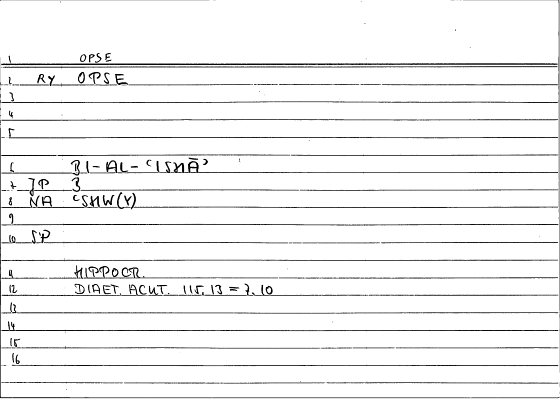 1 OPSE
2 RY OPSE
3
4
5
6 BI-AL-ʿISHĀʾ
7 JP 3
8 NA ʿSHW(Y)
9
10 SP
11 HIPPOCR.
12 DIAET. ACUT. 115, 13 = 7, 10
13
14
15
16